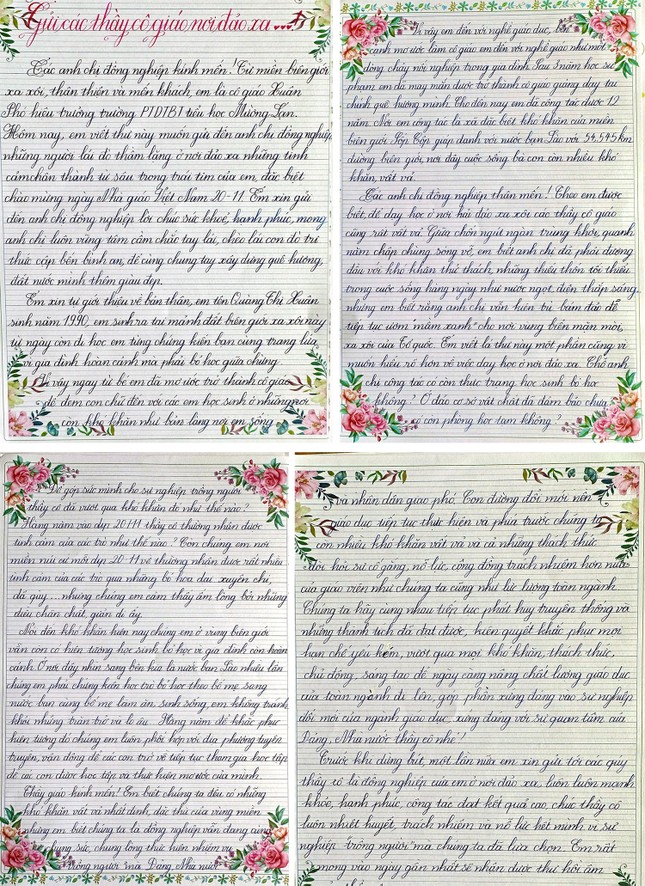 Gửi các thầy cô giáo nơi đảo xa
Các anh chị đồng nghiệp kính mến! Từ miền biên giới
xa xôi, thân thiện và mến khách, em là cô giáo Xuân
Phó hiệu trưởng trường PTDTBT tiểu học Mường Lạn.
Hôm nay, em viết thư này muốn gửi đến anh chị đồng nghiệp
những người lái đò thầm lặng ở nơi đảo xa những tình
cảm chân thành từ sâu trong trái tim của em, đặc biệt
chào mừng ngày Nhà giáo Việt Nam 20-11. Em xin gửi
đến anh chị đồng nghiệp lời chúc sức khoẻ, hạnh phúc, mong
anh chị luôn vững tâm cầm chắc tay lái, chèo lái con đò tri
thức cập bến bình an, để cùng chung tay xây dựng quê hương,
đất nước mình thêm giàu đẹp.
Em xin tự giới thiệu về bản thân, em tên Quàng Thị Xuân
sinh năm 1990, em sinh ra tại mảnh đất biên giới xa xôi này
từ ngày còn đi học em từng chứng kiến bạn cùng trang lứa,
vì gia đình hoàn cảnh mà phải bỏ học giữa chừng.
Vì vậy ngay từ bé em đã mơ ước trở thành cô giáo
để đem con chữ đến với các em học sinh ở những nơi
còn khó khăn như bản làng nơi em sống.
Vì vậy em đến với nghề giáo dục, bên
cạnh mơ ước làm cô giáo em đến với nghề giáo như một
dòng chảy nối nghiệp trong gia đình. Sau 3 năm học sư
phạm em đã may mắn được trở thành cô giáo giảng dạy tại
chính quê hương mình. Cho đến nay em đã công tác được 12
năm. Nơi em công tác là xã đặc biệt khó khăn của miền
biên giới Sốp Cộp giáp danh với nước bạn Lào với 54,545 km
đường biên giới, nơi đây cuộc sống bà con còn nhiều khó
khăn, vất vả.
Các anh chị đồng nghiệp thân mến! Theo em được
biết, để dạy học ở nơi hải đảo xa xôi các thầy cô giáo
cũng rất vất vả. Giữa chốn ngút ngàn trùng khơi, quanh
năm chập chùng sóng vỗ, em biết anh chị đã phải đương
đầu với khó khăn thử thách, những thiếu thốn tối thiểu
trong cuộc sống hàng ngày như nước ngọt, điện thắp sáng..
nhưng em biết rằng anh chị vẫn kiên trì bám đảo để
tiếp tục ươm "mầm xanh" cho nơi vùng biển mặn mòi,
xa xôi của Tổ quốc. Em viết lá thư này một phần cũng vì
muốn hiểu rõ hơn về việc dạy học ở nơi đảo xa. Chỗ anh
chị công tác có còn thực trạng học sinh bỏ học
không? Ở đảo cơ sở vật chất đã đảm bảo chưa,
có còn phòng học tạm không?
Để góp sức mình cho sự nghiệp trồng người
thầy cô đã vượt qua khó khăn đó như thế nào?
Hàng năm vào dịp 20/11 thầy cô thường nhận được
tình cảm của các trò như thế nào? Còn chúng em nơi
miền núi cứ mỗi dịp 20-11 về thường nhận được rất nhiều
tình cảm của các trò qua những bó hoa dại xuyến chi,
dã quỳ... nhưng chúng em cảm thấy ấm lòng bởi những
điều chân chất, giản dị ấy.
Nói đến khó khăn hiện nay chúng em ở vùng biên giới
vẫn còn có hiện tượng học sinh bỏ học vì gia đình còn hoàn
cảnh. Ở nơi đây nhìn sang bên kia là nước bạn Lào nhiều lần
chúng em phải chứng kiến học trò bỏ học theo bố mẹ sang
nước bạn cùng bố mẹ làm ăn, sinh sống, em không tránh
khỏi những trăn trở và lo âu. Hàng năm để khắc phục
hiện tượng đó chúng em luôn phối hợp với địa phương tuyên
truyền, vận động để các con trở về tiếp tục tham gia học tập
để các con được học tập và thực hiện mơ ước của mình.
Thầy giáo kính mến! Em biết chúng ta đều có những
khó khăn vất vả nhất định, đặc thù của vùng miền
nhưng em biết chúng ta là đồng nghiệp vẫn đang cùng
chung sức, chung lòng thực hiện nhiệm vụ
trồng người mà Đảng, Nhà nước
và nhân dân giao phó. Con đường đổi mới nền
giáo dục tiếp tục thực hiện và phía trước chúng ta
còn nhiều khó khăn vất vả và cả những thách thức
đòi hỏi sự cố gắng, nỗ lực, cộng đồng trách nhiệm hơn nữa
của giáo viên như chúng ta cũng như lực lượng toàn ngành.
Chúng ta hãy cùng nhau tiếp tục phát huy truyền thống và
những thành tích đã đạt được, kiên quyết khắc phục mọi
hạn chế yếu kém, vượt qua mọi khó khăn, thách thức,
chủ động, sáng tạo để ngày càng nâng chất lượng giáo dục
của toàn ngành đi lên, góp phần xứng đáng vào sự nghiệp
đổi mới của ngành giáo dục, xứng đáng với sự quan tâm của
Đảng, Nhà nước thầy cô nhé!
Trước khi dừng bút, một lần nữa em xin gửi tới các quý
thầy cô là đồng nghiệp của em ở nơi đảo xa, luôn luôn mạnh
khỏe, hạnh phúc, công tác đạt kết quả cao, chúc thầy cô
luôn nhiệt huyết, trách nhiệm và nỗ lực hết mình vì sự
nghiệp trồng người mà chúng ta đã lựa chọn. Em rất
mong vào ngày gần nhất sẽ nhận được thư hồi âm